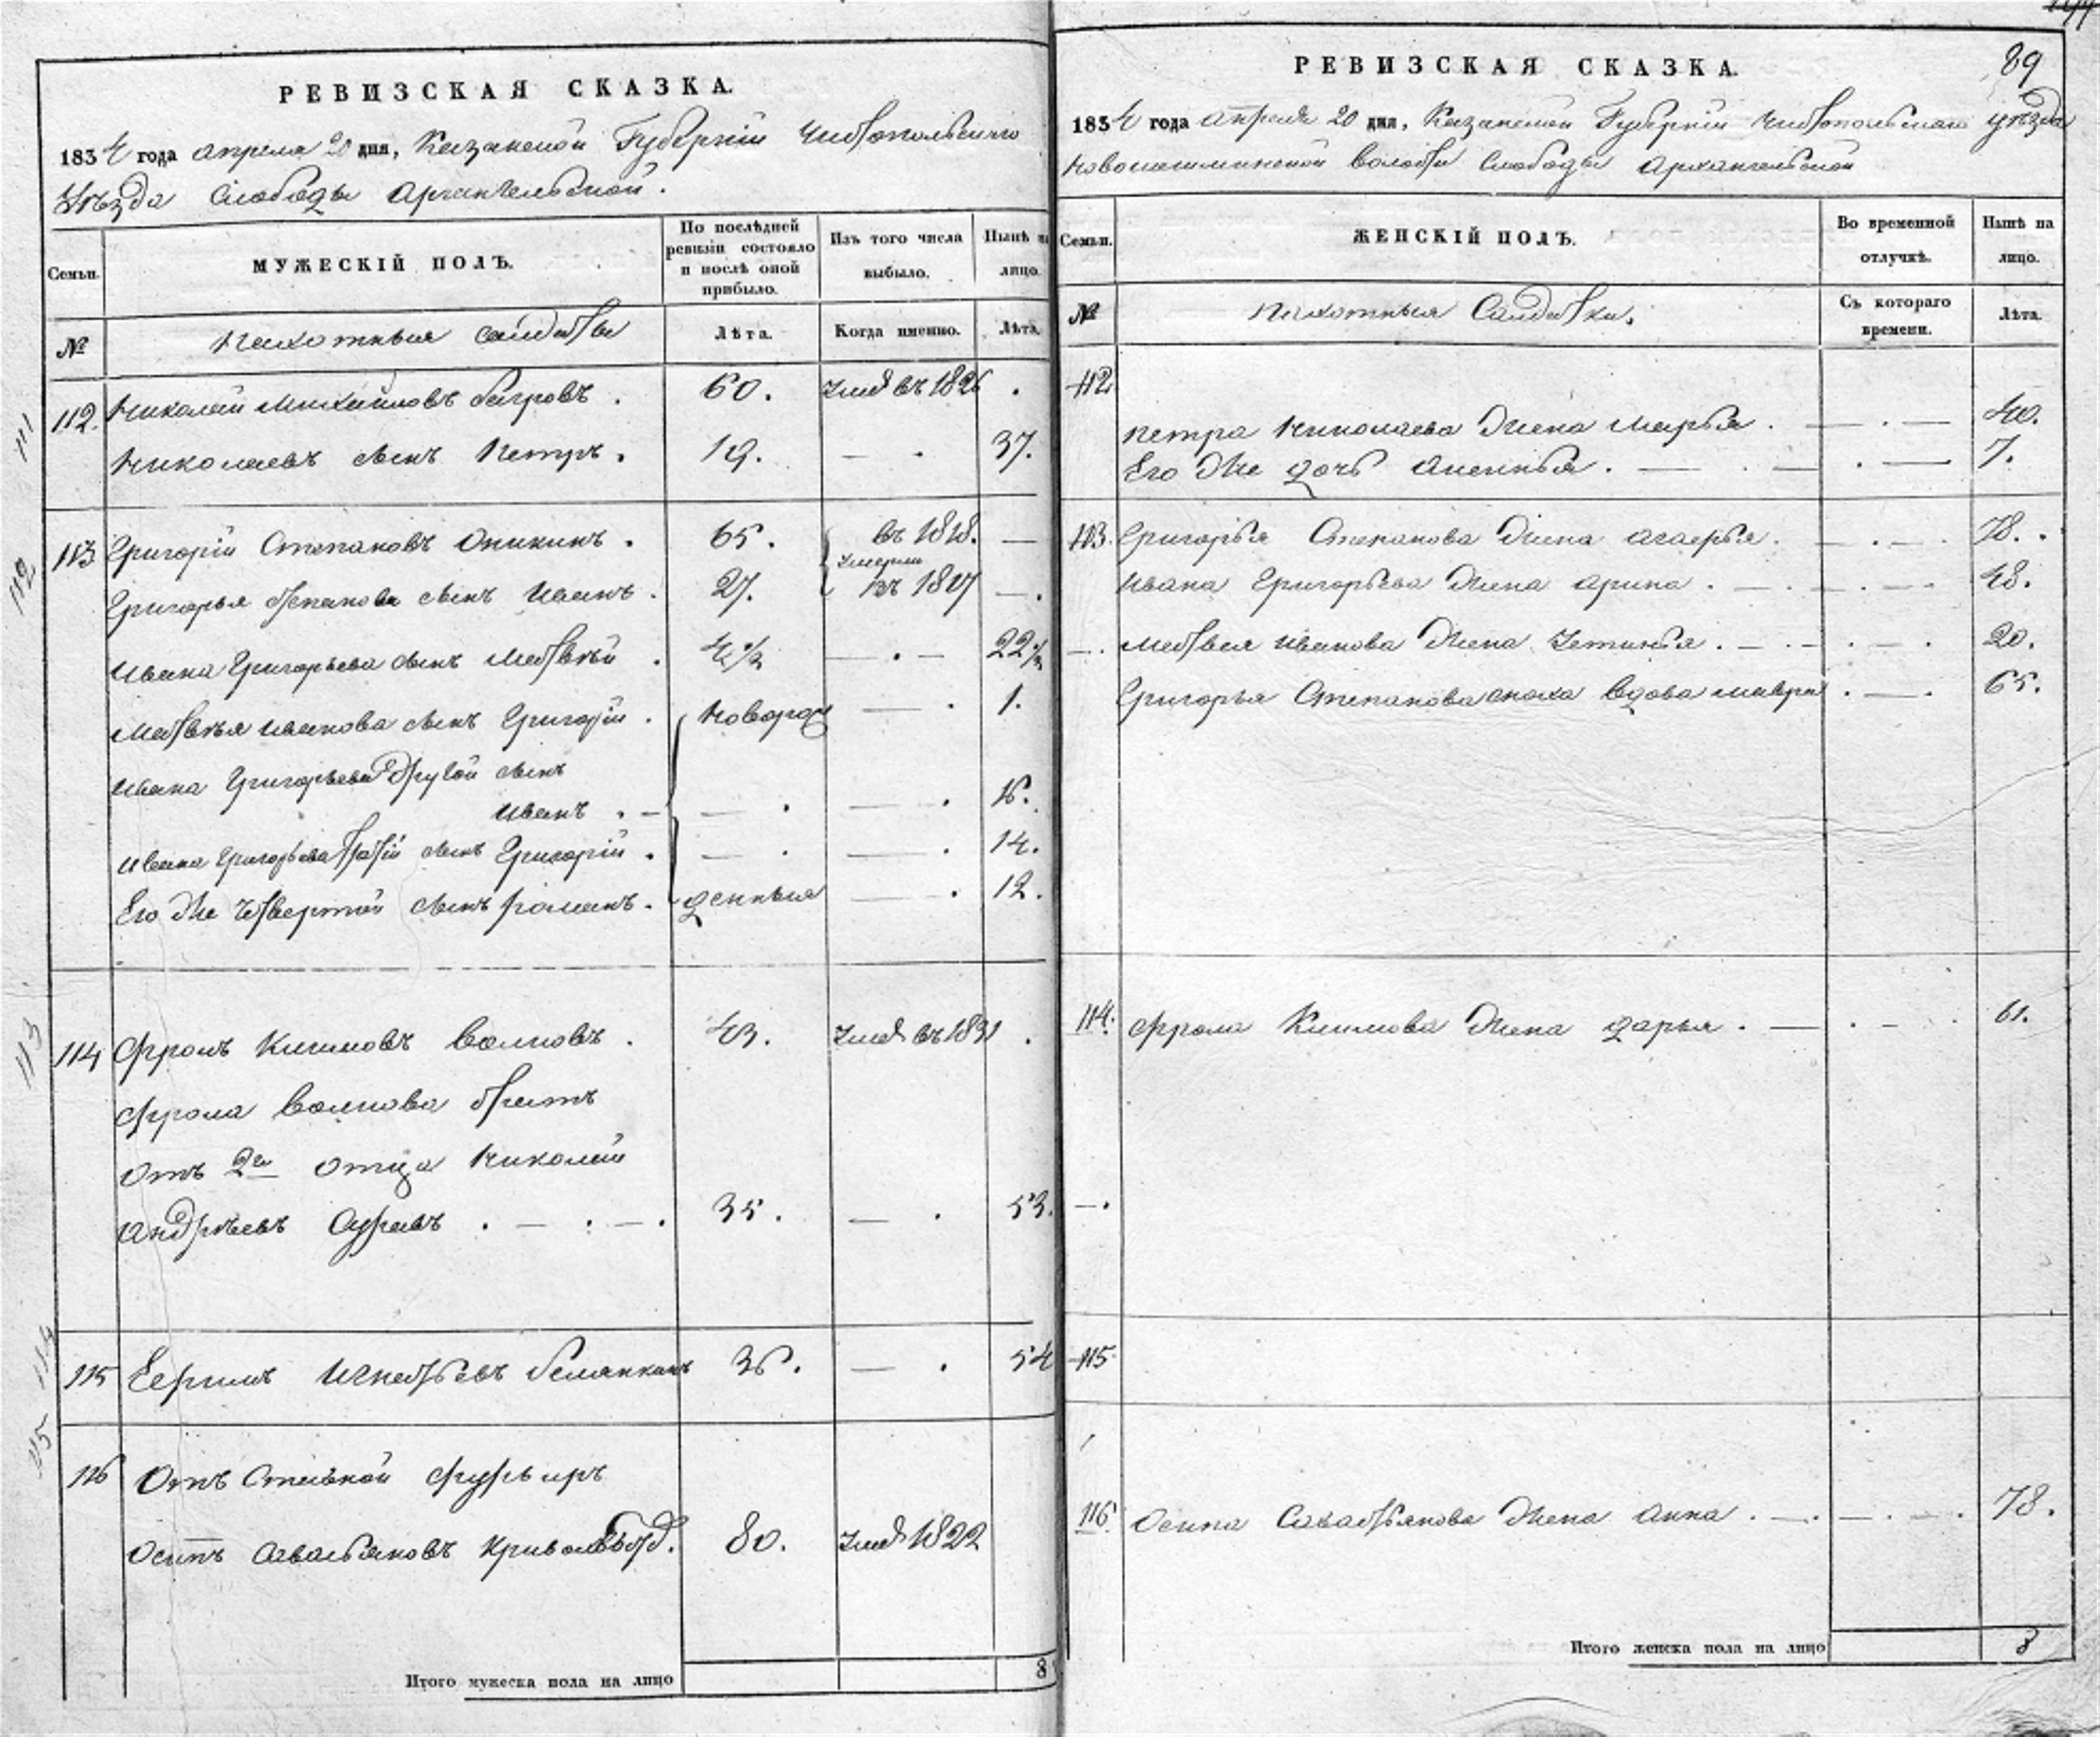 РЕВИЗСКАЯ СКАЗКА.
1834 года апреля 20 дня, Казанской Губернiи Чистопольскаго
Уѣзда Слободы Архангельской.
Семьи.
МУЖЕСКIЙ ПОЛЪ.
По послѣдней ревизiи состояло и послѣ оной прибыло.
Изъ того числа выбыло.
Нынѣ на лицо.
№
Пахотныя солдаты
Лѣта.
Когда именно.
Лѣта.
111
112. Николай Михайловъ Багровъ . 60. Умеръ въ 1826 .
Николаевъ сынъ Петръ . 19. — . 37.
112
113 Григорiй Степановъ Аникинъ . 65. въ 1818. —
Умерли
Григорья Степанова сынъ Иванъ . 27. въ 1827 — .
Ивана Григорьева сынъ Матвѣй . 4 1/2 — . — 22 1/2
Матвѣя Иванова сынъ Григорiй . новорож — . 1.
Ивана Григорьева другой сынъ
Иванъ . — — . — . 16.
Ивана Григорьева третiй сынъ Григорiй . — . — . 14.
Его же четвертой сынъ Романъ . денныя — . 12.
113
114 Фролъ Климовъ Волковъ . 43. Умеръ въ 1831 .
Фрола Волкова братъ
отъ 2го отца Николай
Андрѣевъ . — . — . 35. — . 53.
114
115 Ефимъ Игнатьевъ Белянкинъ 36. — . 54
115
116 Отъ Ставной фурьиръ
Осипъ Савастьяновъ 80. Умеръ 1822
Итого мужеска пола на лицо 8
89
РЕВИЗСКАЯ СКАЗКА.
1834 года апреля 20 дня, Казанской Губернiи Чистопольскаго уѣзда
Новошешминской волости Слободы Архангельской
Семьи.
ЖЕНСКIЙ ПОЛЪ.
Во временной отлучкѣ.
Нынѣ на лицо.
№
Пахотныя Солдатки.
Съ котораго времени.
Лѣта.
112
Петра Николаева жена Марья . — . — 40.
Его же дочь Аненья . — . — . — 7.
113. Григорья Степанова жена Агафья . — . — . 78. .
Ивана Григорьева жена Арина . — . — . — . 48.
— . Матвея Иванова жена Устинья . — . — . — . 20.
Григорья Степанова сноха вдова Мавра . — . 65.
114. Фрола Климова жена Дарья . — . — . 61.
— .
115
116. Осипа Савастьянова жена Анна . — . — . — . 78.
Итого женска пола на лицо 8